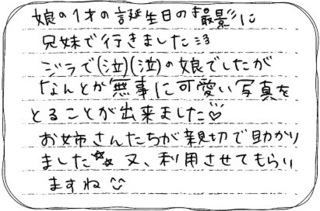 娘の1才の誕生日の撮影に
兄妹で行きました
ジラで(泣)(泣)の娘でしたが
なんとか無事に可愛い写真を
とることが出来ました♡
お姉さんたちが親切で助かり
ました☆☆ 又、利用させてもらい
ますね☺